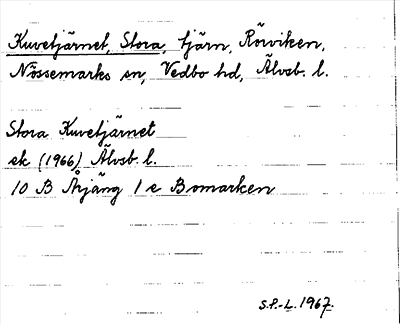 Kuvetjärnet, Stora, tjärn, Rörviken,
Nössemarks sn, Vedbo hd, Älvsb. l.
Stora Kuvetjärnet
ek (1966) Älvsb. l.
10 B Årjäng 1 e Bomarken
S.P.-L. 1967.